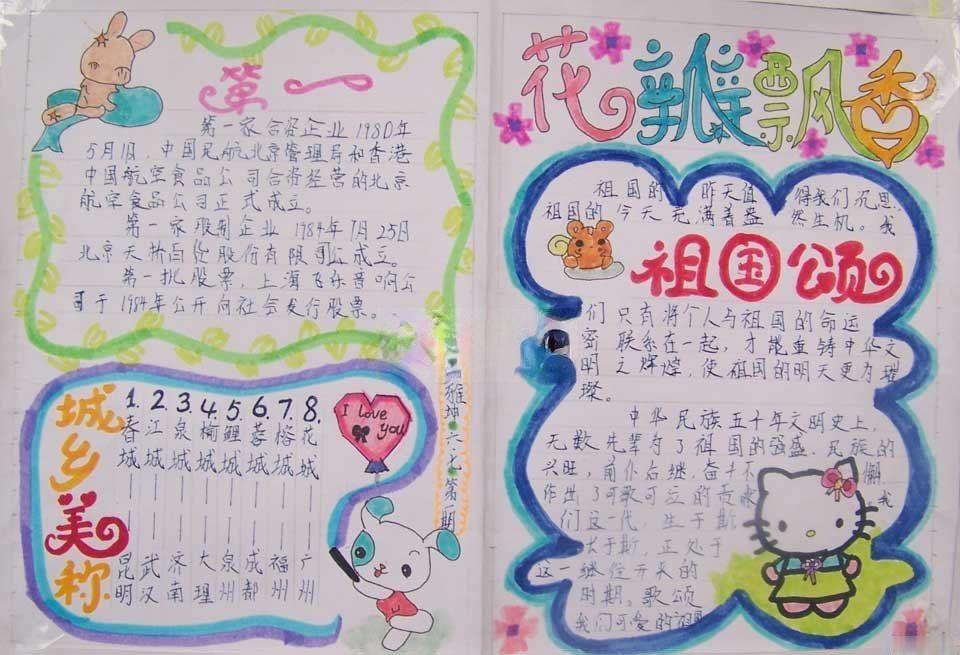 第一
第一家合资企业1980年
5月1日，中国民航北京管理局和香港
中国航空食品公司合资经营的北京
航空食品公司正式成立。
第一家股制企业1984年7月25日
北京天桥百货股份有限公司成立。
第一批股票，上海飞乐音响公
司于1984年公开向社会发行股票。
城乡美称
1.春城——昆明
2.江城——武汉
3.泉城——济南
4.榆城——大理
5.鲤城——泉州
6.蓉城——成都
7.榕城——福州
8.花城——广州
I love
you
雅坤 六、元 第一期
花瓣飘香
祖国的 昨天值 得我们沉思
祖国的 今天充满着盎 然生机。我
祖国颂
们 只有将个人与祖国的命运
密 联系在一起，才能重铸中华文
明 之辉煌，使祖国的明天更为璀
璨。
中华民族五千年文明史上，
无数先辈为了祖国的强盛、民族的
兴旺，前仆后继，奋斗不 懈
作出了可歌可泣的贡献 。我
们这一代，生于斯
长于斯，正处于
这一继往开来的
时期。歌颂
我们可爱的祖国